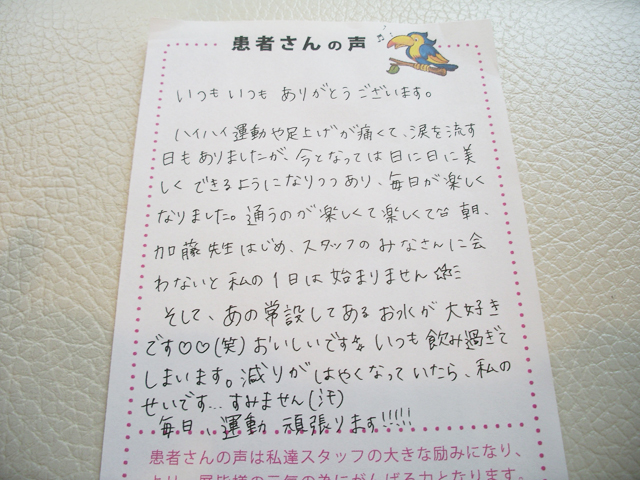 患者さんの声
いつもいつも ありがとうございます。
ハイハイ運動や足上げが痛くて、涙を流す
日もありましたが、今となっては日に日に美
しく できるようになりつつあり、毎日が楽しく
なりました。通うのが楽しくて楽しくて 朝、
加藤先生はじめ、スタッフのみなさんに会
わないと私の1日は始まりません
そして、あの常設してあるお水が大好き
です♡♡(笑) おいしいです☆ いつも飲み過ぎて
しまいます。減りがはやくなっていたら、私の
せいです…すみません(汗)
毎日、運動 頑張ります!!!!!
患者さんの声は私達スタッフの大きな励みになり、
より一層皆様の元気の為にがんばる力となります。